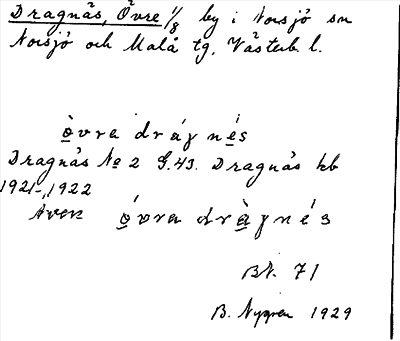 Dragnäs, Övre 1/8 by i Norsjö sn
Norsjö och Malå tg, Västerb. l.
ò̲vra drág nés
Dragnäs No 2 G.43. Dragnäs kb
1921-1922
Även ó̲vra drà̲g nés
BN. 71
B. Nygren 1929